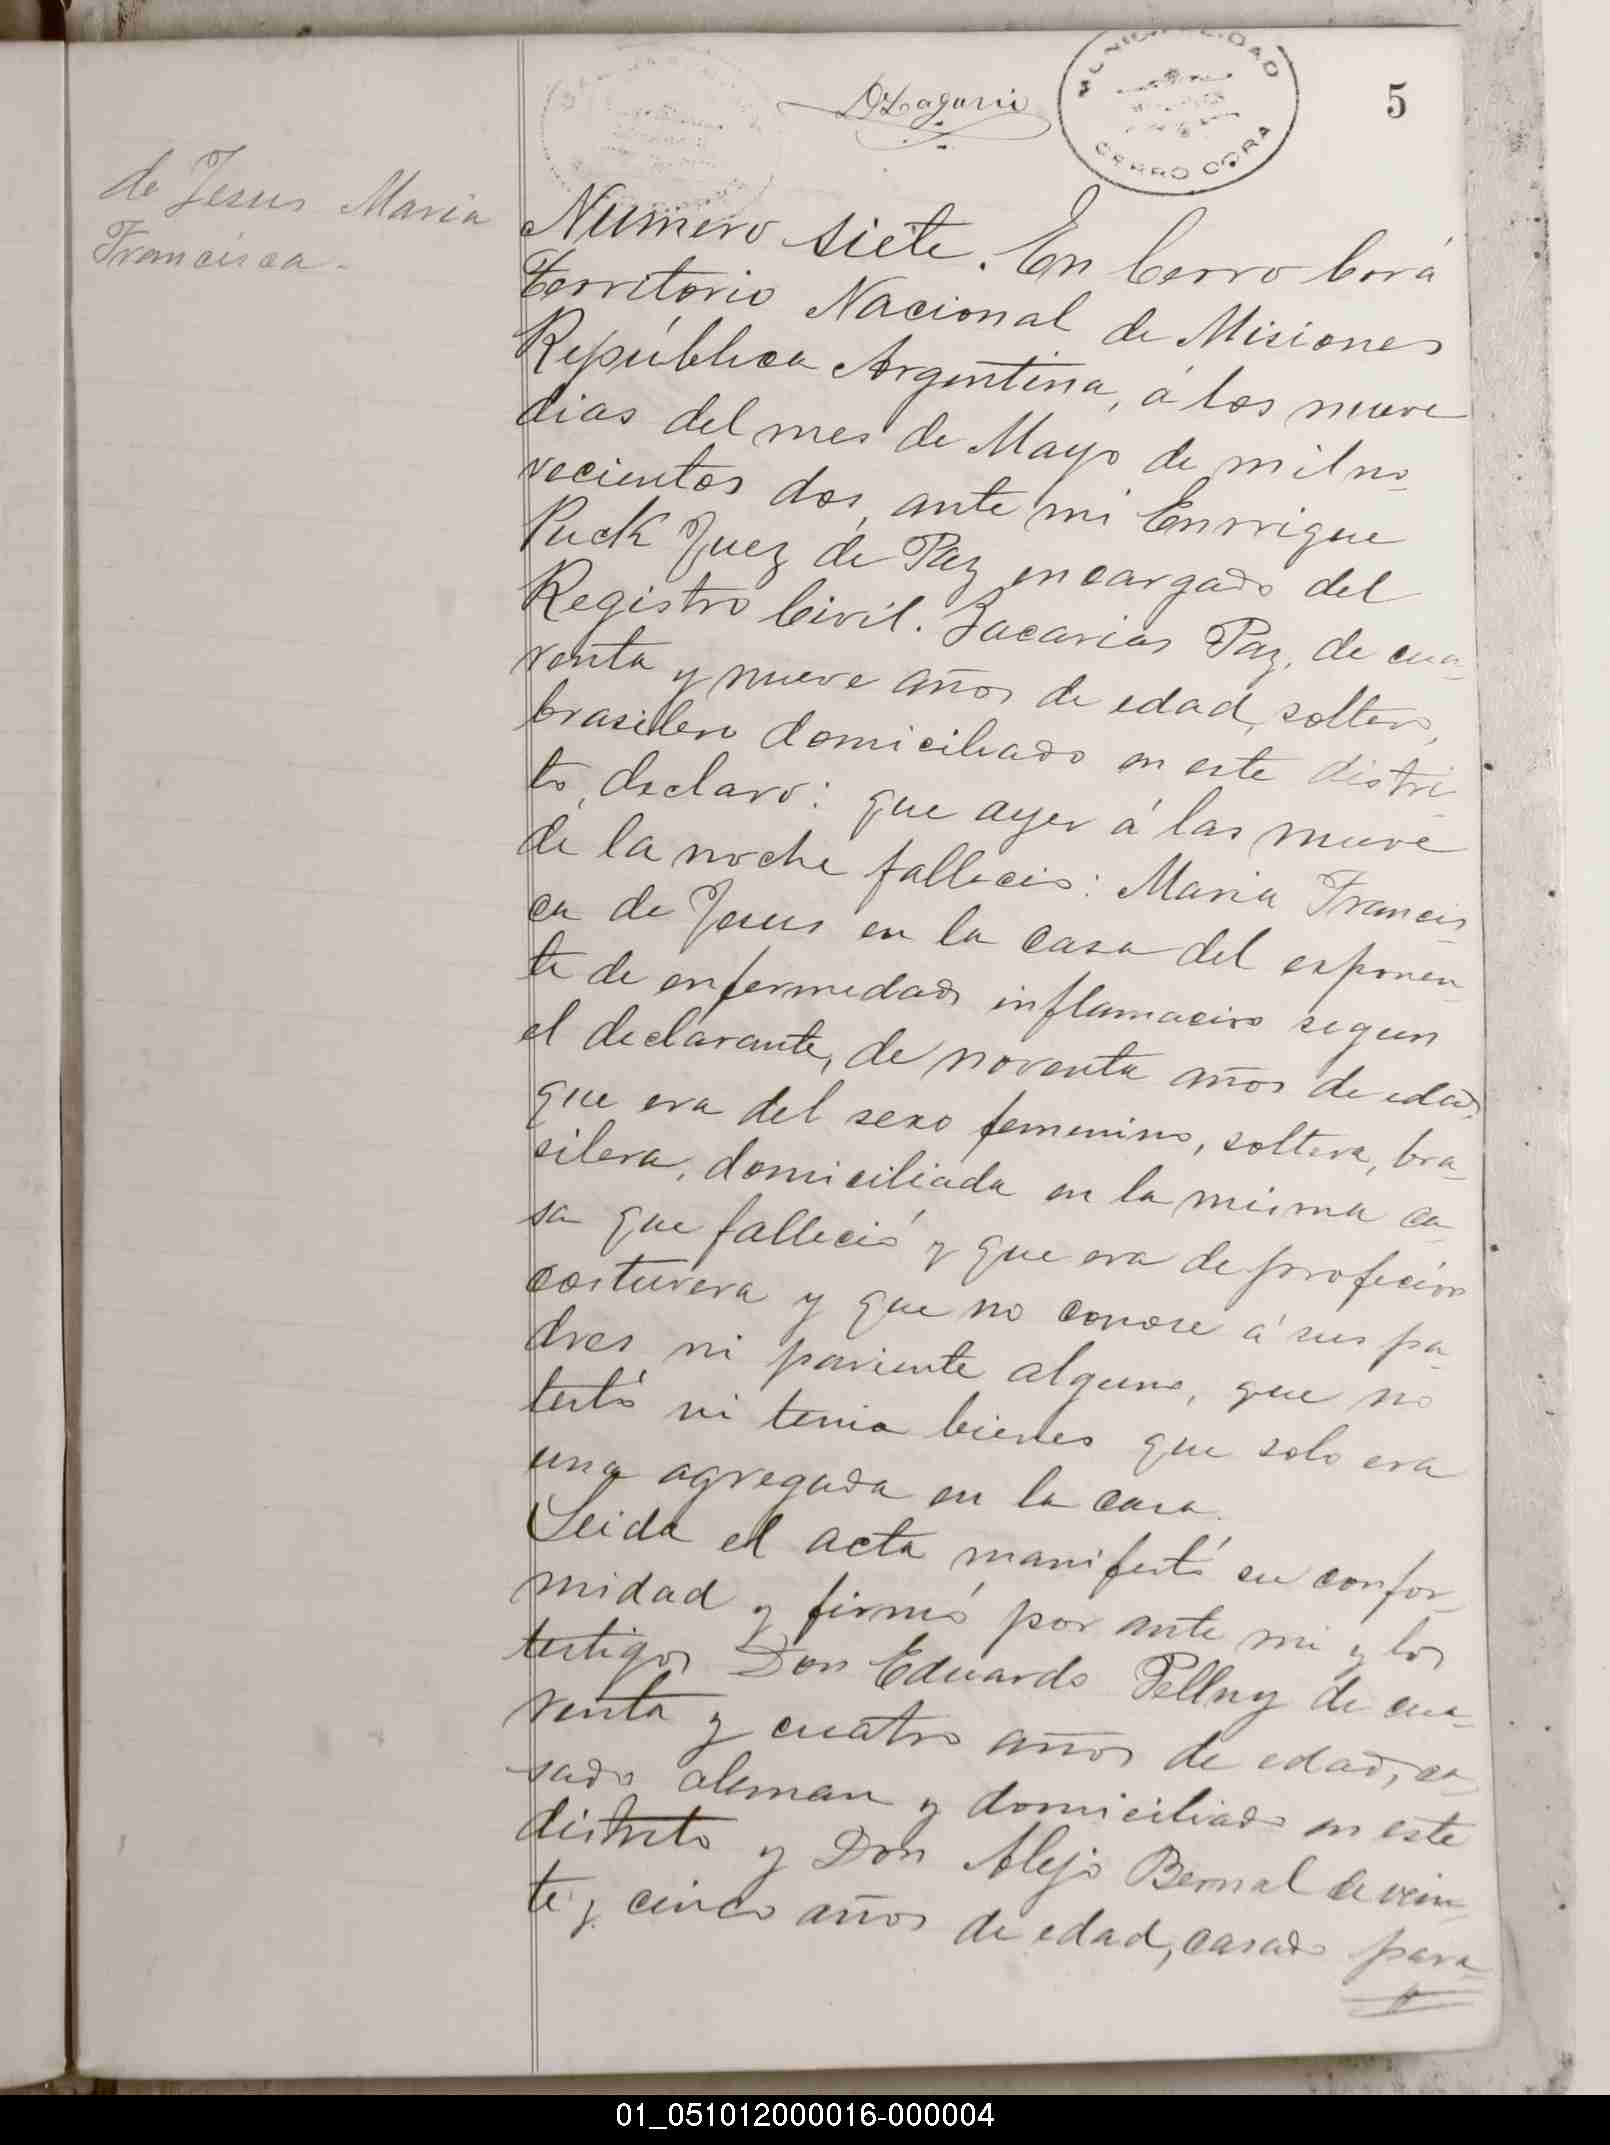 MUNICIPALIDAD
CERRO CORA
5
de Jesus Maria
Francisca.
Numero siete. En Cerro Corá
Territorio Nacional de Misiones
República Argentina, á los nueve
dias del mes de Mayo de mil no-
vecientos dos, ante mi Enrrique
Puck Juez de Paz encargado del
Registro Civil. Zacarias Paz, de cua-
renta y nueve años de edad, soltero,
brasilero domiciliado en este distri
to, declaro: que ayer á las nueve
de la noche fallecio: Maria Francis-
ca de Jesus en la casa del exponen-
te de enfermedad inflamacion segun
el declarante, de noventa años de edad,
que era del sexo femenino, soltera, bra-
silera, domiciliada en la misma ca-
sa que falleció y que era de profeción
costurera y que no conose á sus pa-
dres ni pariente alguno, que no
testó ni tenia bienes que solo era
una agregada en la casa.
Leida el acta manifestó su confor-
midad y firmó por ante mi y los
testigos Don Eduardo Pellny de cua-
renta y cuatro años de edad, ca-
sado aleman y domiciliado en este
distrito y Don Alejo Bernal de vein-
te y cinco años de edad, casado para-
01_051012000016-000004